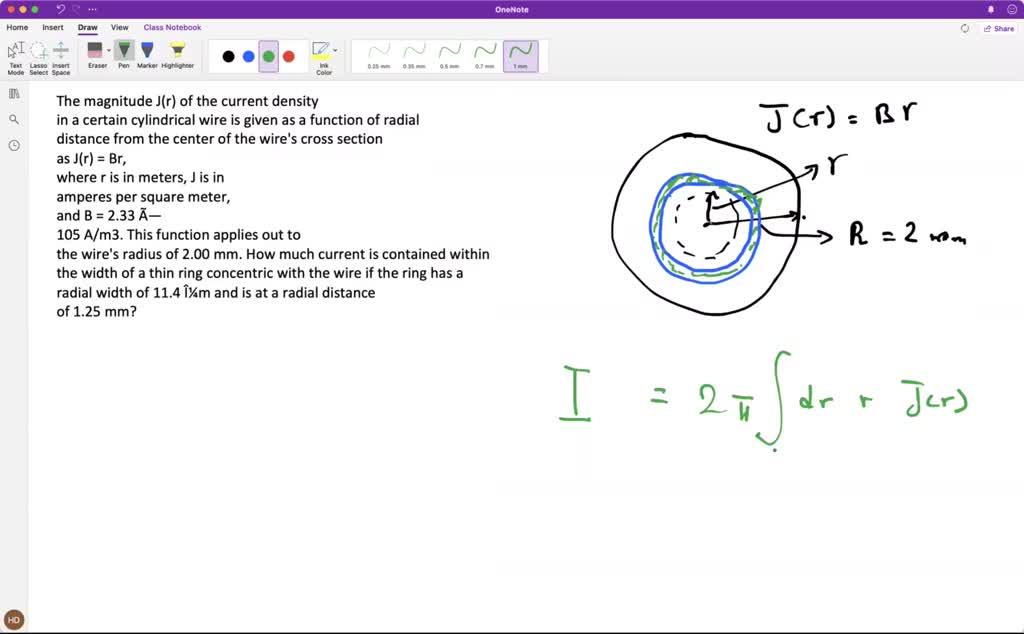 OneNote
Home Insert Draw View Class Notebook
Share
Text Mode
Lasso Select
Insert Space
Eraser
Pen
Marker
Highlighter
Ink Color
0.25 mm
0.35 mm
0.5 mm
0.7 mm
1 mm
The magnitude J(r) of the current density
in a certain cylindrical wire is given as a function of radial
distance from the center of the wire's cross section
as J(r) = Br,
where r is in meters, J is in
amperes per square meter,
and B = 2.33 Ã—
105 A/m3. This function applies out to
the wire's radius of 2.00 mm. How much current is contained within
the width of a thin ring concentric with the wire if the ring has a
radial width of 11.4 Î¼m and is at a radial distance
of 1.25 mm?
J(r) = Br
r
R = 2 mm
I = 2π∫ dr r J(r)
HD